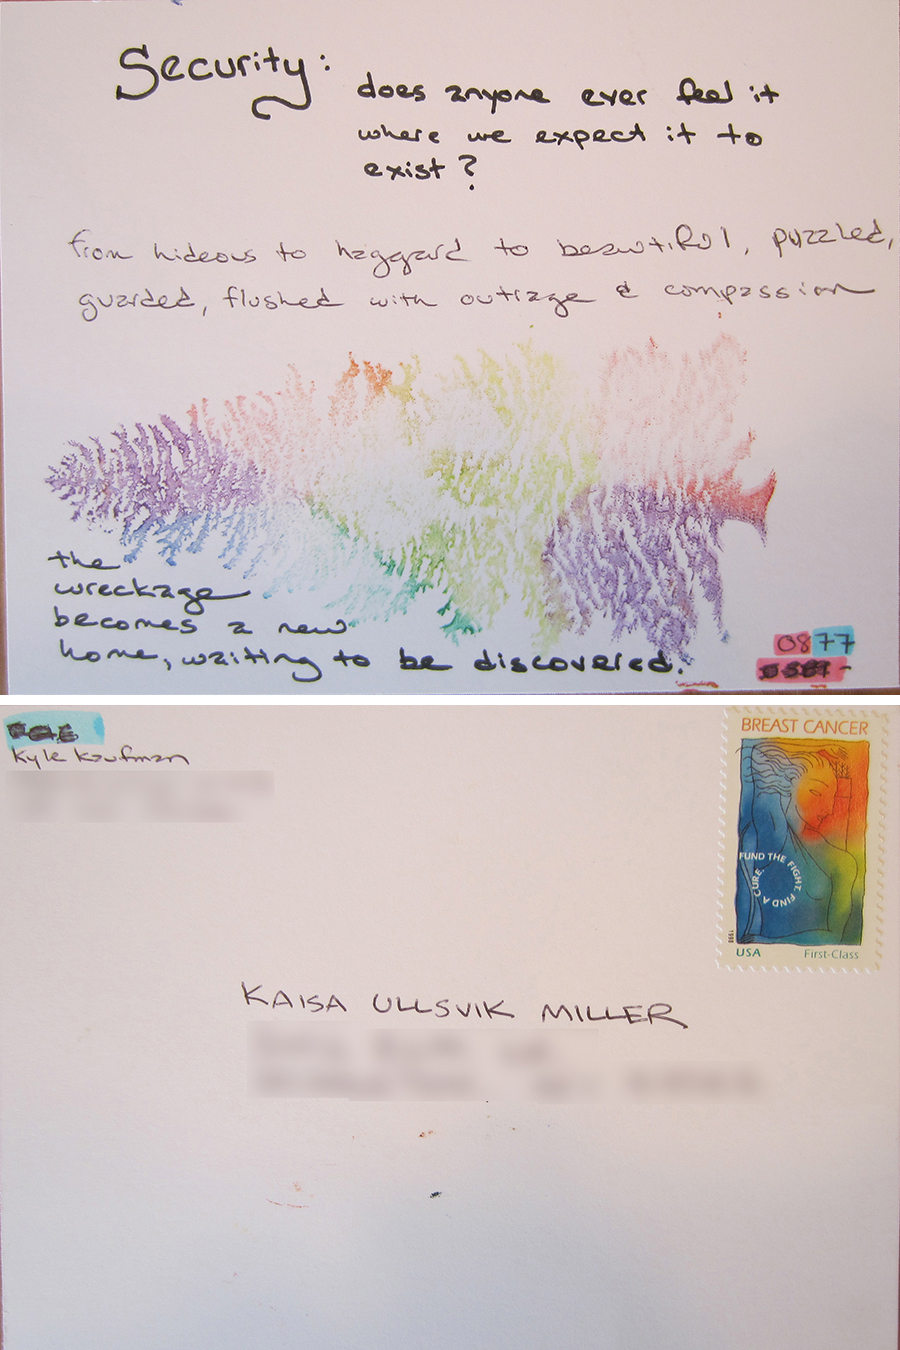 Security:
does anyone ever feel it
where we expect it to
exist?
from hideous to haggard to beautiful, puzzled,
guarded, flushed with outrage & compassion
the
wreckage
becomes a new
home, waiting to be discovered.
0877
Kyle Kaufman
BREAST CANCER
FUND THE FIGHT. FIND A CURE.
1998
USA First-Class
KAISA ULLSVIK MILLER